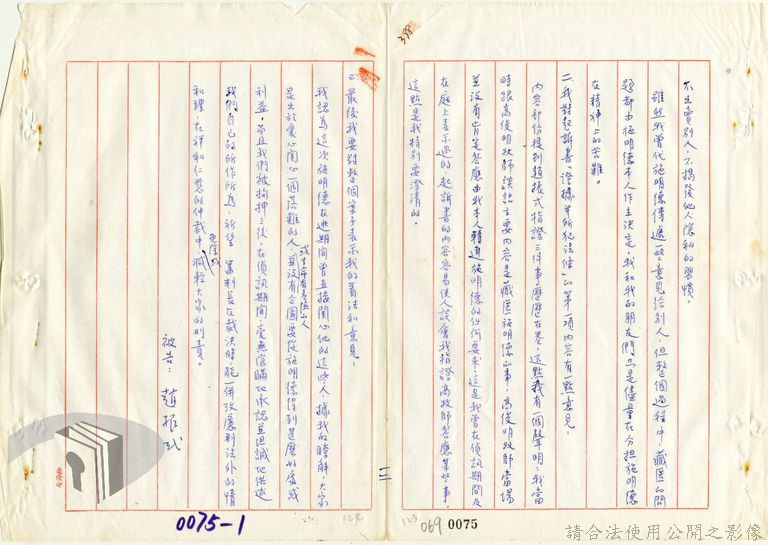 398
不出賣別人，不揭發他人隱私的習慣。
雖然我曾代施明德傳遞一些意見給別人，但整個過程中，藏匿的問
題都由施明德本人作主決定，我和我的朋友們只是儘量在分担施明德
在精神上的苦難。
二、我對起訴書「證據并所犯法條」的第一項內容有一點意見，
內容部份提到趙振貳指證三件事歷歷在卷，這點我有一個聲明：我當
時跟高俊明牧師談話主要內容是藏匿施明德的事，高俊明牧師當場
並沒有片語答應由我本人轉達施明德的任何要求，這是我曾在偵訊期間及
在庭上表示過的，起訴書的內容容易使人誤會我指證高牧師答應某些事，
這點是我特別要澄清的。
三、最後我要對整個案子表示我的看法和意見：
我認為這次施明德在逃期間曾直接關心他的這些人，據我的瞭解，大家
是出於愛心關心一個落難的人，並沒有企圖要從施明德得到甚麼好處或
利益，而且我們被拘押之後，在偵訊期間，毫無隱瞞地承認並坦誠地供述
我們自己的所作所為，祈望 審判長在裁決時能一併改慮刑法外的情
和理，在祥和仁慈的仲裁中，減輕大家的刑責。
被告：趙振貳
0075-1
124
123
069
0075
請合法使用公開之影像